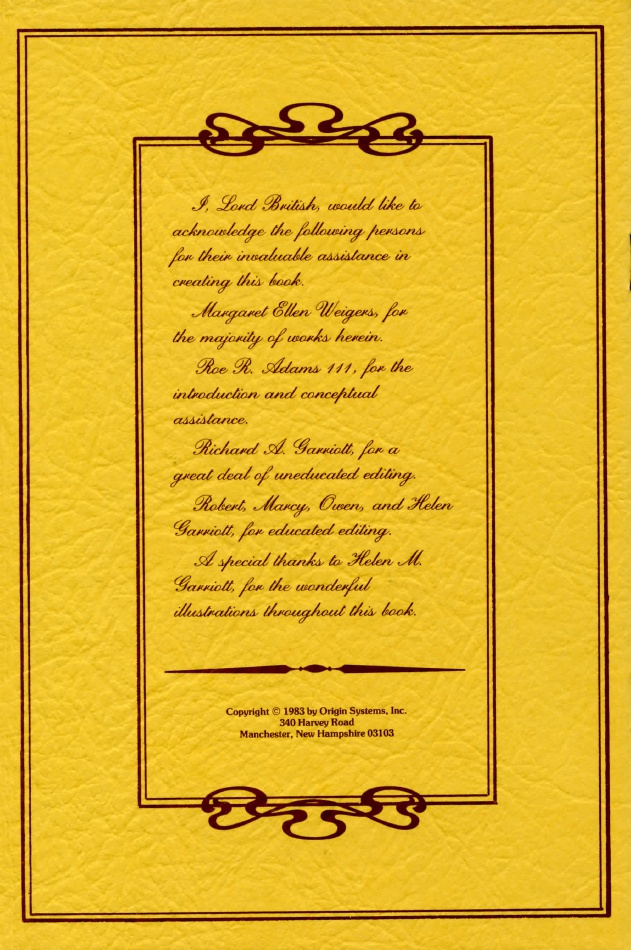 I, Lord British, would like to
acknowledge the following persons
for their invaluable assistance in
creating this book.
Margaret Ellen Weigers, for
the majority of works herein.
Roe R. Adams 111, for the
introduction and conceptual
assistance.
Richard A. Garriott, for a
great deal of uneducated editing.
Robert, Marcy, Owen, and Helen
Garriott, for educated editing.
A special thanks to Helen M.
Garriott, for the wonderful
illustrations throughout this book.
Copyright © 1983 by Origin Systems, Inc.
340 Harvey Road
Manchester, New Hampshire 03103